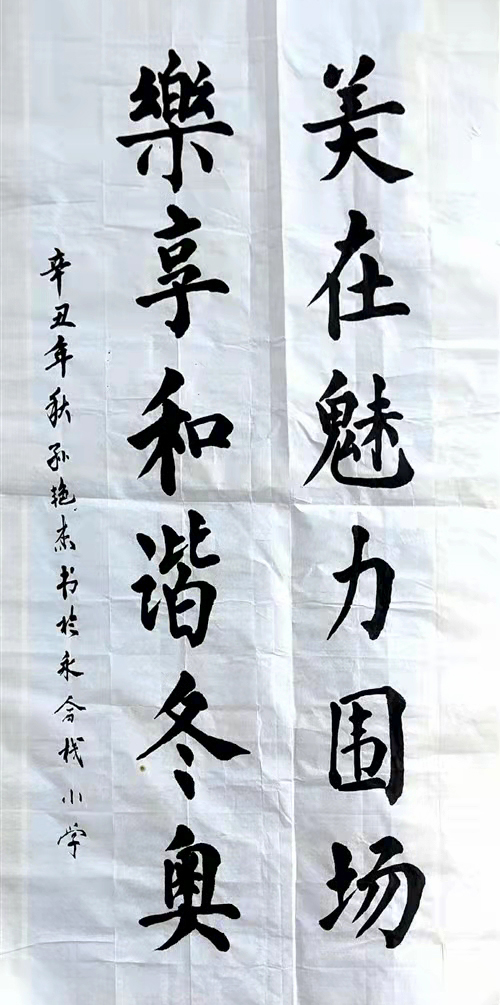 美在魅力围场
樂享和谐冬奥
辛丑年秋孙艳杰书於永合栈小学